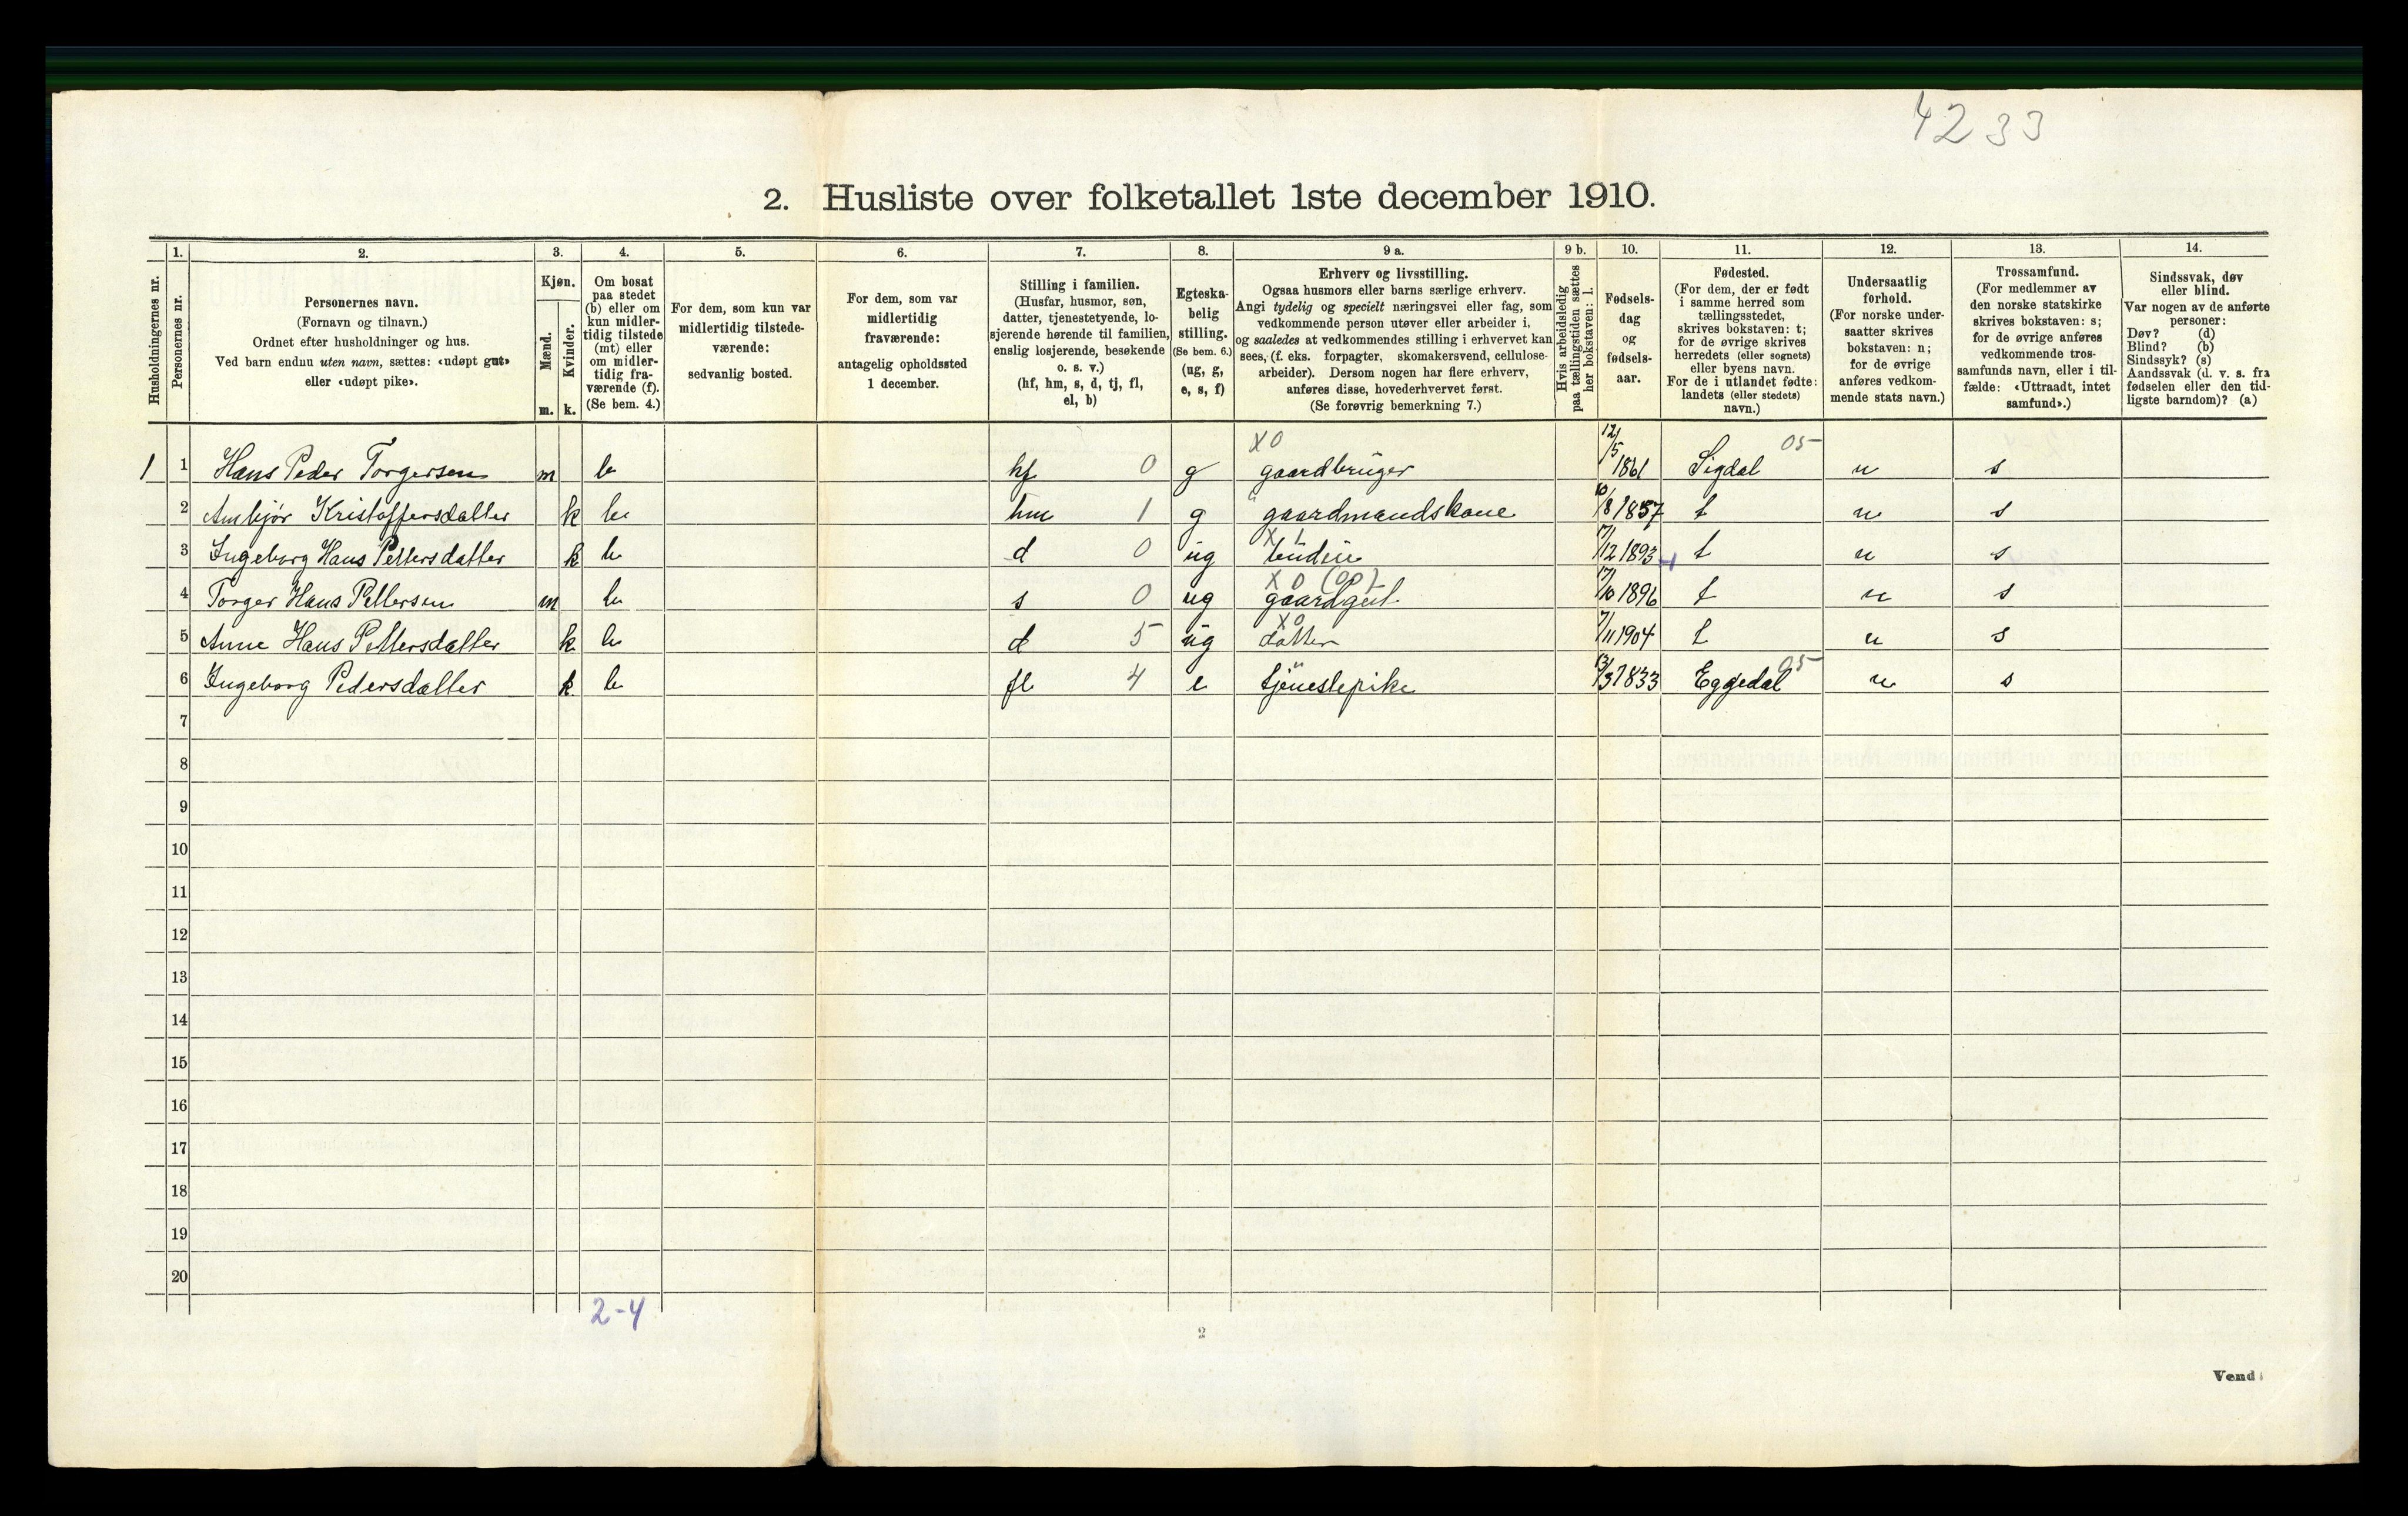 4233
2. Husliste over folketallet 1ste december 1910.
Husholdningernes nr.
1.
Personernes nr.
2.
Personernes navn.
(Fornavn og tilnavn.)
Ordnet efter husholdninger og hus.
Ved barn endnu uten navn, sættes: «udøpt gut»
eller «udøpt pike».
3.
Kjøn.
Mænd.
m.
Kvinder.
k.
4.
Om bosat
paa stedet
(b) eller om
kun midler-
tidig tilstede
(mt) eller
om midler-
tidig fra-
værende (f).
(Se bem. 4.)
5.
For dem, som kun var
midlertidig tilstede-
værende:
sedvanlig bosted.
6.
For dem, som var
midlertidig
fraværende:
antagelig opholdssted
1 december.
7.
Stilling i familien.
(Husfar, husmor, søn,
datter, tjenestetyende, lo-
sjerende hørende til familien,
enslig losjerende, besøkende
o. s. v.)
(hf, hm, s, d, tj, fl,
el, b)
8.
Egteska-
belig
stilling.
(Se bem. 6.)
(ug, g,
e, s, f)
9 a.
Erhverv og livsstilling.
Ogsaa husmors eller barns særlige erhverv.
Angi tydelig og specielt næringsvei eller fag, som
vedkommende person utøver eller arbeider i,
og saaledes at vedkommendes stilling i erhvervet kan
sees, (f. eks. forpagter, skomakersvend, cellulose-
arbeider). Dersom nogen har flere erhverv,
anføres disse, hovederhvervet først.
(Se forøvrig bemerkning 7.)
9 b.
Hvis arbeidsledig
paa tællingstiden sættes
her bokstaven: l.
10.
Fødsels-
dag
og
fødsels-
aar.
11.
Fødested.
(For dem, der er født
i samme herred som
tællingsstedet,
skrives bokstaven: t;
for de øvrige skrives
herredets (eller sognets)
eller byens navn.
For de i utlandet fødte:
landets (eller stedets)
navn.)
12.
Undersaatlig
forhold.
(For norske under-
saatter skrives
bokstaven: n;
for de øvrige
anføres vedkom-
mende stats navn.)
13.
Trossamfund.
(For medlemmer av
den norske statskirke
skrives bokstaven: s;
for de øvrige anføres
vedkommende tros-
samfunds navn, eller i til-
fælde: «Uttraadt, intet
samfund».)
14.
Sindssvak, døv
eller blind.
Var nogen av de anførte
personer:
Døv? (d)
Blind? (b)
Sindssyk? (s)
Aandssvak (d. v. s. fra
fødselen eller den tid-
ligste barndom)? (a)
X0 05
1 1 Hans Peder Torgersen m b hf 0 g gaardbruger 12/5 1861 Sigdal n s
2 Ambjør Kristoffersdatter k b hm 1 g " gaardmandskone 10/8 1857 t n s
X 1
3 Ingeborg Hans Pettersdatter k b d 0 ug budeie 17/12 1893 t n s
X 0 (00)
4 Torger Hans Pettersen m b s 0 ug gaardgut 17/10 1896 t n s
X0
5 Anne Hans Pettersdatter k b d 5 ug datter 7/11 1904 t n s
" 05
6 Ingeborg Pedersdatter k b fl 4 e tjenestepike 13/3 1833 Eggedal n s
7
8
9
10
11
12
13
14
15
16
17
18
19
20
2-4
2
Vend